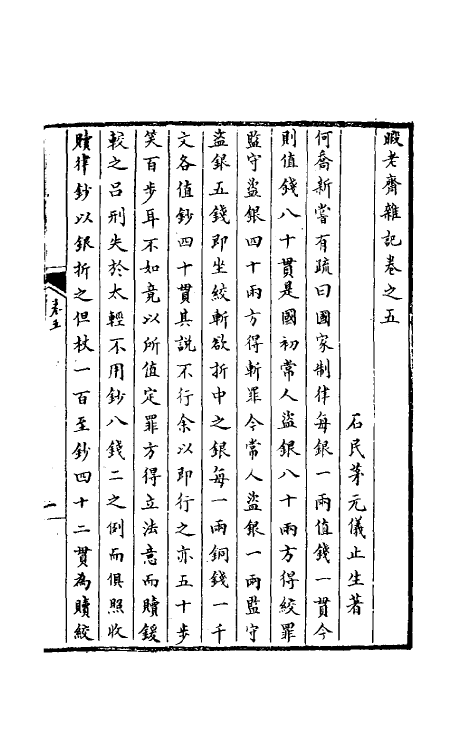 暇老齋雜記卷之五
石民茅元儀止生著
何喬新嘗有疏曰國家制律每銀一兩值錢一貫今
則值錢八十貫是國初常人盜銀八十兩方得絞罪
監守盜銀四十兩方得斬罪今常人盜銀一兩監守
盜銀五錢即坐絞斬欲折中之銀每一兩銅錢一千
文各值鈔四十貫其說不行余以即行之亦五十步
笑百步耳不如竟以所值定罪方得立法意而贖鍰
較之呂刑失於太輕不用鈔八錢二之例而俱照收
贖律鈔以銀折之但杖一百至鈔四十二貫為贖絞
卷五
一